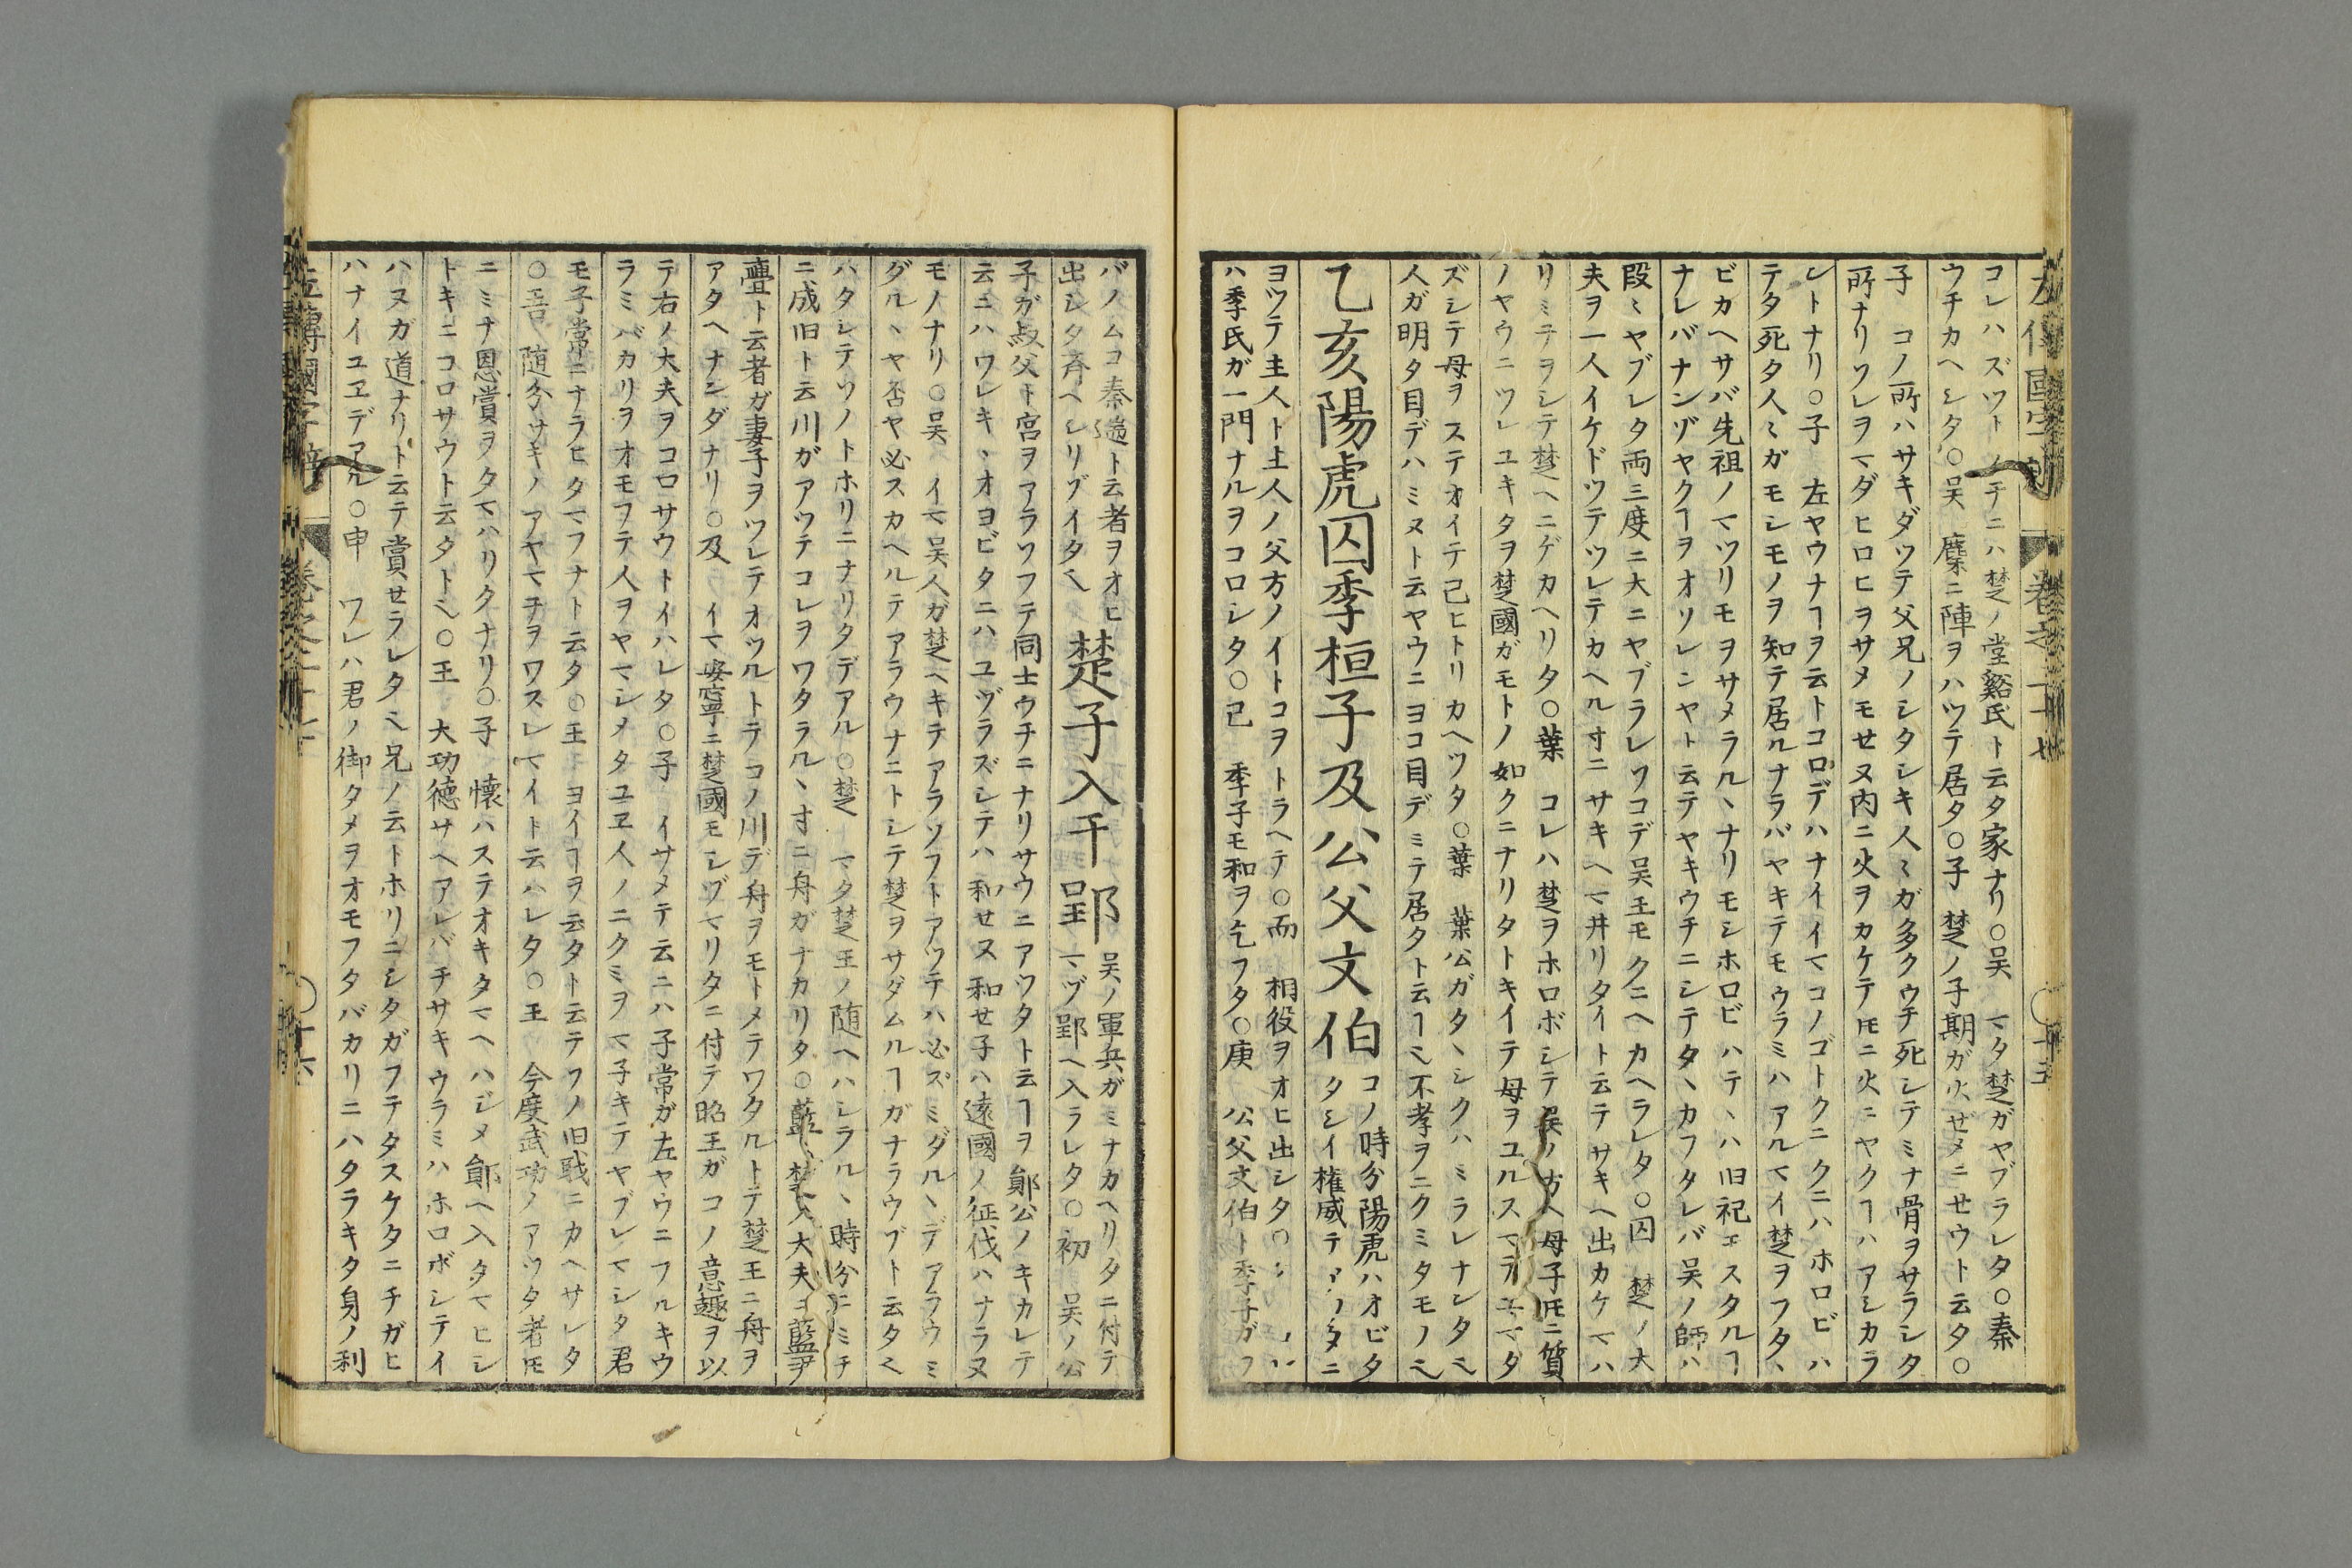 コレハズツトノチニハ楚ノ堂谿氏ト云タ家ナリ○吳 マタ楚ガヤブラレタ○秦
ウチカヘシタ○吳 麇ニ陣ヲハツテ居タ○子 楚ノ子期ガ火ゼメニセウト云タ○
子 コノ所ハサキダツテ父兄ノシタシキ人〻ガ多クウチ死シテミナ骨ヲサラシタ
所ナリソレヲマダヒロヒヲサメモせヌ内ニ火ヲカケテ𪜈ニ火ニヤクヿハアシカラ
レトナリ○子 左ヤウナヿヲ云トコロデハナイイマコノゴトクニクニハホロビハ
テタ死タ人〻ガモシモノヲ知テ居ルナラバヤキテモウラミハアルマイ楚ヲフタヽ
ビカヘサバ先祖ノマツリモヲサメラルヽナリモシホロビハテヽハ旧祀ヱスタルヿ
ナレバナンゾヤクヿヲオソレンヤト云テヤキウチニシテタヽカフタレバ吳ノ師ハ
段〻ヤブレタ両三度ニ大ニヤブラレソコデ吳王モクニヘカヘラレタ○囚 楚ノ大
夫ヲ一人イケドツテツレテカヘル寸ニサキヘマ井リタイト云テサキヘ出カケマハ
リミチヲシテ楚ヘニゲカヘリタ○葉 コレハ楚ヲホロボシテ後ノ方人母子𪜈ニ質
ノヤウニツレユキタヲ楚國ガモトノ如クニナリタトキイテ母ヲユルスマテニマタ
ズシテ母ヲステオイテ己ヒトリカヘツタ○葉 葉公ガタヽシクハミラレナンダ〻
人ガ明タ目デハミヌト云ヤウニヨコ目デミテ居タト云ヿ〻不孝ヲニクミタモノ〻
乙亥陽虎囚季桓子及公父文伯 コノ時分陽虎ハオビタ
タシイ権威テアツタニ
ヨツテ主人ト主人ノ父方ノイトコヲトラヘテ○而 相役ヲオヒ出シタ○
ハ季氏ガ一門ナルヲコロシタ○己 季子モ和ヲ乞フタ○庚 公父文伯ト季子ガフ
バノムコ秦遄ト云者ヲオヒ
出シタ斉ヘシリゾイタ〻
楚子入于郢 吳ノ軍兵ガミナカヘリタニ付テ
マヅ郢ヘ入ラレタ○初 吳ノ公
子ガ叔父ト宮ヲアラソフテ同士ウチニナリサウニアツタト云ヿヲ鄖公ノキカレテ
云ニハワレキヽオヨビタニハユヅラズシテハ和せヌ和せ子ハ遠國ノ征伐ハナラヌ
モノナリ○吳 イマ吳人ガ楚ヘキテアラソフトアツテハ必ズミダルヽデアラウミ
ダルヽヤ否ヤ必スカヘルテアラウナニトシテ楚ヲサダムルヿガナラウゾト云タ〻
ハタシテソノトホリニナリタデアル○楚 マタ楚王ノ随ヘハシラルヽ時分ニミチ
ニ成旧ト云川ガアツテコレヲワタラルヽ寸ニ舟ガナカリタ○藍 楚ノ大夫ニ藍尹
亹ト云者ガ妻子ヲツレテオツルトテコノ川デ舟ヲモトメテワタルトテ楚王ニ舟ヲ
アタヘナンダナリ○及 イマ安寧ニ楚國モシヅマリタニ付テ昭王ガコノ意趣ヲ以
テ右ノ大夫ヲコロサウトイハレタ○子 イサメテ云ニハ子常ガ左ヤウニフルキウ
ラミバカリヲオモフテ人ヲヤマシメタユヱ人ノニクミヲマ子キテヤブレマシタ君
モ子常ニナラヒタマフナト云タ○王 ヨイヿヲ云タト云テソノ旧職ニカヘサレタ
○吾 随分サキノアヤマチヲワスレマイト云ハレタ○王 今度武功ノアツタ者𪜈
ニミナ恩賞ヲタマハリタナリ○子 懐ハステオキタマヘハジメ鄖ヘ入タマヒシ
トキニコロサウト云タト〻○王 大功徳サヘアレバチサキウラミハホロボシテイ
ハヌガ道ナリト云テ賞せラレタ〻兄ノ云トホリニシタガフテタスケタニチガヒ
ハナイユヱデアル○申 ワレハ君ノ御タメヲオモフタバカリニハタラキタ身ノ利